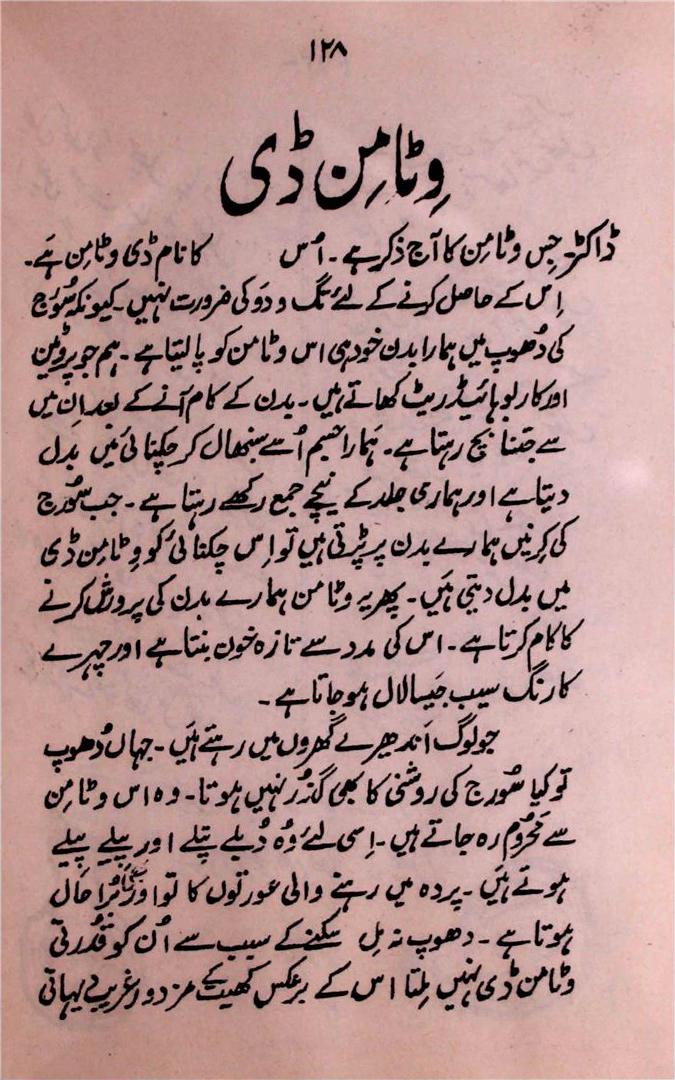 ۱۲۸
وِٹامِن ڈی
ڈاکٹر۔ جِس وٹامِن کا آج ذکر ہے۔ اُس کا نام ڈی وٹامِن ہَے۔
اِس کے حاصل کرنے کے لئے تگ و دَو کی ضرورت نہیں۔ کیونکہ سُورج
کی دُھوپ میں ہمارا بدن خود ہی اس وٹامن کو پا لیتا ہے۔ ہم جو پروٹین
اور کاربوہائیڈریٹ کھاتے ہیں۔ بدن کے کام آنے کے بعد اِن میں
سے جتنا بچ رہتا ہے۔ ہَمارا جسم اُسے سنبھال کر چکنائی مَیں بدل
دیتا ہے اور ہماری جلد کے نیچے جمع رکھے رہتا ہے۔ جب سُورج
کی کِرنیں ہمارے بدن پر پڑتی ہیں تو اِس چکنائی کو وِٹامِن ڈی
میں بدل دیتی ہَیں۔ پھر یہ وٹامن ہمارے بدن کی پرورش کرنے
کا کام کرتا ہے۔ اس کی مدد سے تازہ خون بنتا ہے اور چہرے
کا رنگ سیب جَیسا لال ہو جاتا ہے۔
جو لوگ اَندھیرے گھروں میں رہتے ہَیں۔ جہاں دُھوپ
تو کیا سُورج کی روشنی کا بھی گذُر نہیں ہوتا۔ وہ اس وٹامِن
سے مَحرُوم رہ جاتے ہیں۔ اِسی لئے وُہ دُبلے پتلے اور پیلے پیلے
ہوتے ہَیں۔ پردہ میں رہنے والی عورتوں کا تو اور بھی بُرا حال
ہوتا ہے۔ دھوپ نہ مِل سکنے کے سبب سے اُن کو قُدرتی
وٹامن ڈی نہیں مِلتا اس کے برعکس کھیت کے مزدور غریب دیہاتی